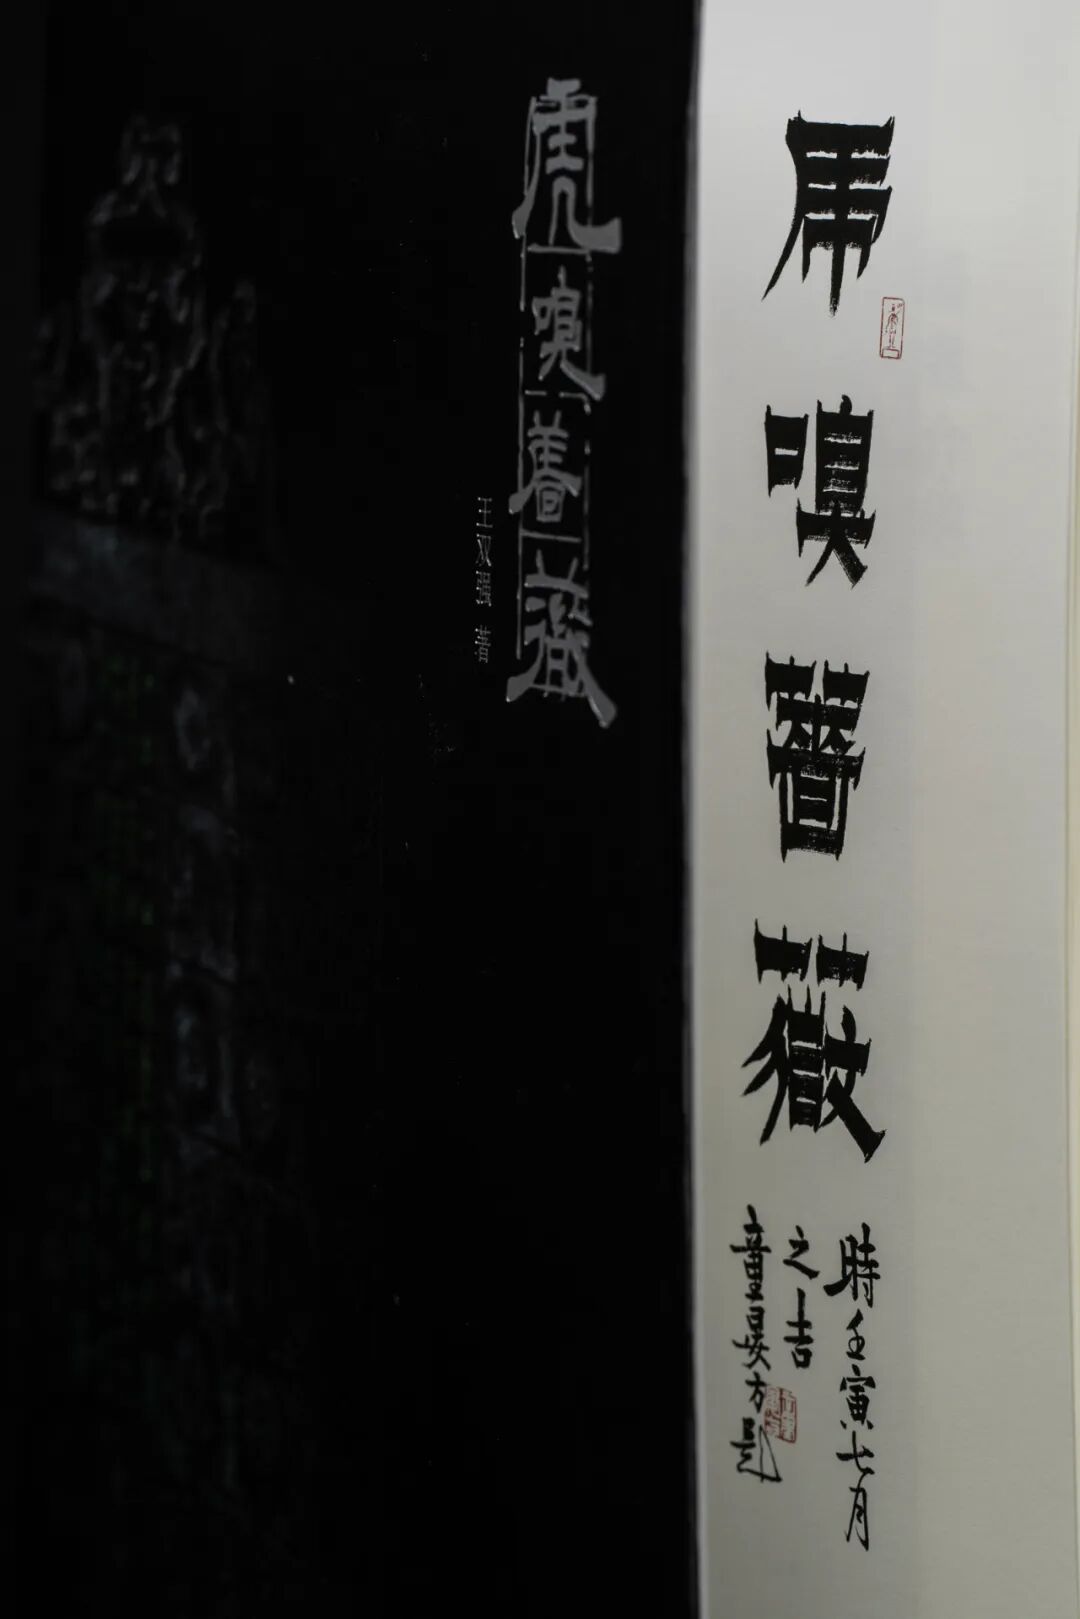 虎嗅薔薇
時壬寅七月
之吉
虎嗅薔薇
王双强 著